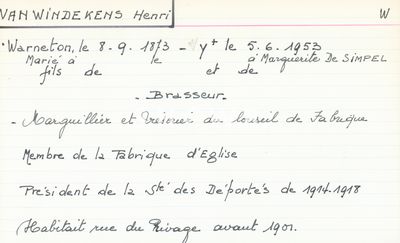 VAN WINDEKENS Henri W
Warneton, le 8.9.1873 - y + le 5.6.1953
Marié à le à Marguerite De SIMPEL
fils de et de
- Brasseur -
- Marguillier et Trésorier du Conseil de Fabrique
Membre de la Fabrique d'Eglise
Président de la Sté des Déportés de 1914-1918
Habitait rue du Rivage avant 1901.